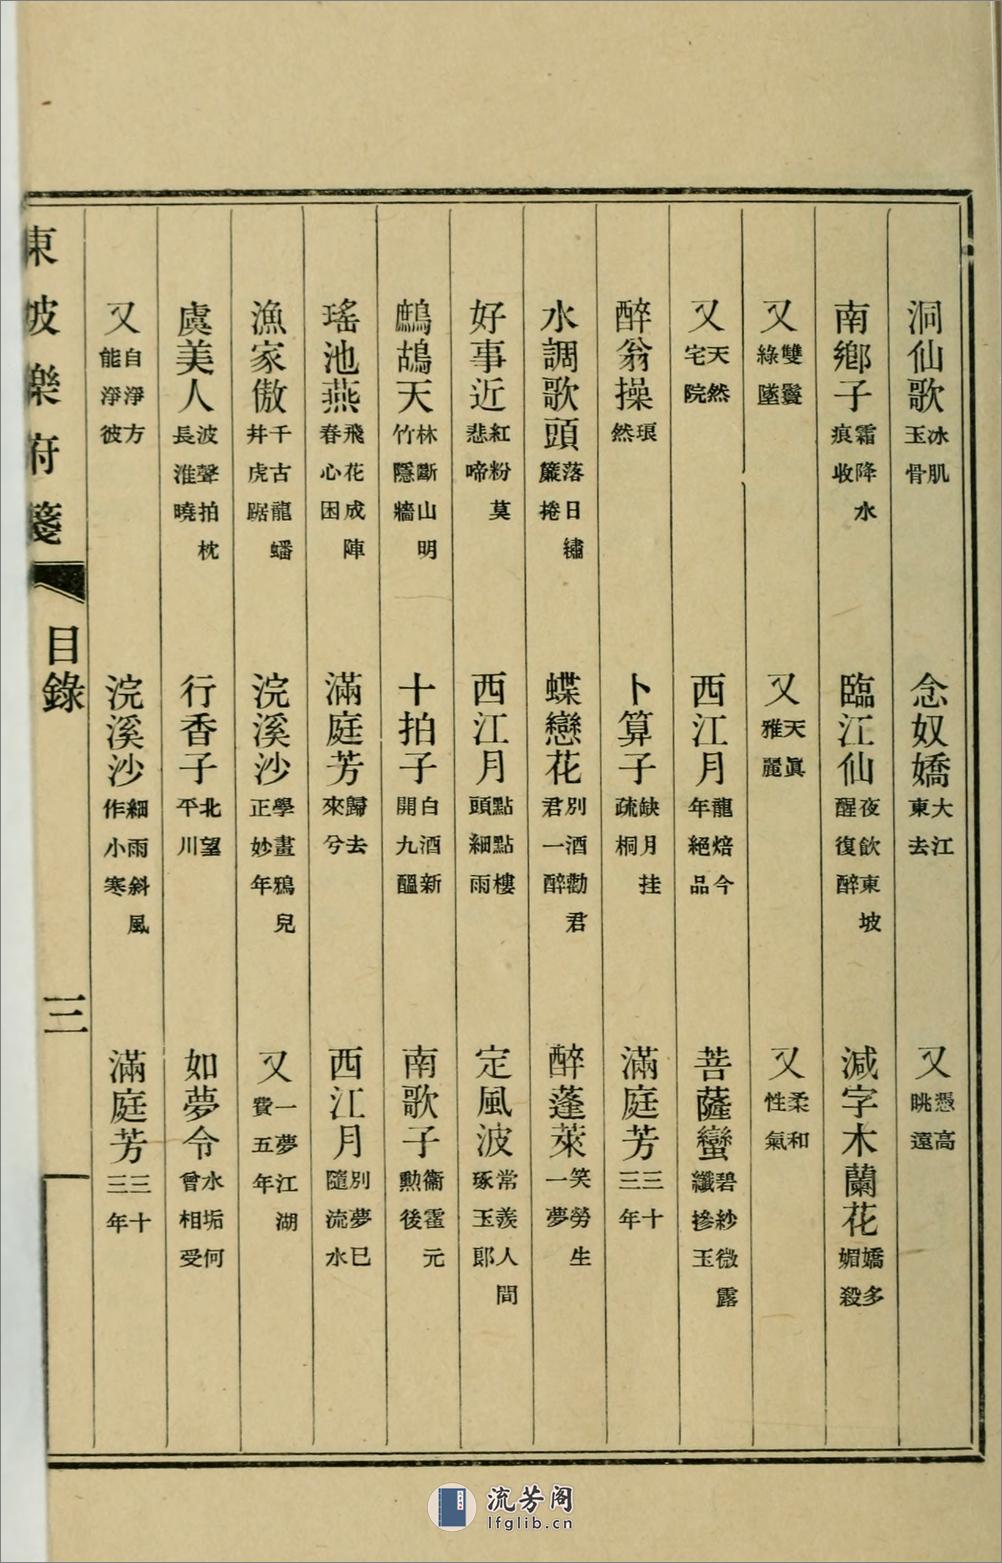 洞仙歌 冰肌玉骨　念奴嬌 大江東去　又 憑高眺遠
南鄕子 霜降水痕收　臨江仙 夜飲東坡醒復醉　減字木蘭花 嬌多媚殺
又 雙鬟綠墜　又 天眞雅麗　又 柔和性氣
又 天然宅院　西江月 龍焙今年絕品　菩薩蠻 碧紗微露纖摻玉
醉翁操 琅然　卜算子 缺月挂疏桐　滿庭芳 三十三年
水調歌頭 落日繡簾捲　蝶戀花 別酒勸君君一醉　醉蓬萊 笑勞生一夢
好事近 紅粉莫悲啼　西江月 點點樓頭細雨　定風波 常羨人間琢玉郎
鷓鴣天 林斷山明竹隱牆　十拍子 白酒新開九醞　南歌子 衞霍元勳後
瑤池燕 飛花成陣春心困　滿庭芳 歸去來兮　西江月 別夢已隨流水
漁家傲 千古龍蟠井虎踞　浣溪沙 學畫鴉兒正妙年　又 一夢江湖費五年
虞美人 波聲拍枕長淮曉　行香子 北望平川　如夢令 水垢何曾相受
又 自淨方能淨彼　浣溪沙 細雨斜風作小寒　滿庭芳 三十三年
東坡樂府箋　目錄　三
流芳阁
lfglib.cn